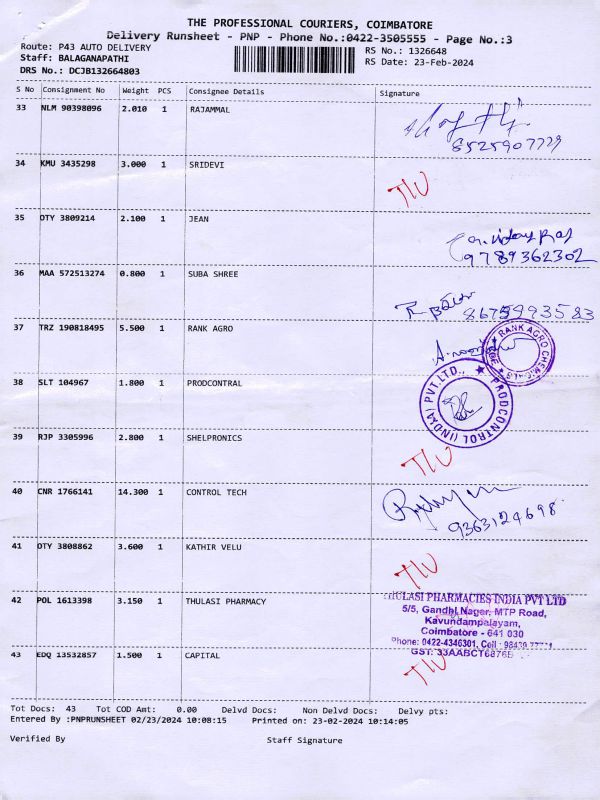 THE PROFESSIONAL COURIERS, COIMBATORE
Delivery Runsheet - PNP - Phone No.:0422-3505555 - Page No.:3
Route: P43 AUTO DELIVERY RS No.: 1326648
Staff: BALAGANAPATHI RS Date: 23-Feb-2024
DRS No.: DCJB132664803
S No Consignment No Weight PCS Consignee Details Signature
33 NLM 90398096 2.010 1 RAJAMMAL
8525907779
34 KMU 3435298 3.000 1 SRIDEVI
35 OTY 3809214 2.100 1 JEAN
9789362302
36 MAA 572513274 0.800 1 SUBA SHREE
37 TRZ 190818495 5.500 1 RANK AGRO
RANK AGRO CHEM
38 SLT 104967 1.800 1 PRODCONTRAL
PRODCONTROL (INDIA) PVT.LTD.,
39 RJP 3305996 2.800 1 SHELPRONICS
40 CNR 1766141 14.300 1 CONTROL TECH
9363124698
41 OTY 3808862 3.600 1 KATHIR VELU
42 POL 1613398 3.150 1 THULASI PHARMACY
THULASI PHARMACIES INDIA PVT LTD
5/5, Gandhi Nagar, MTP Road,
Kavundampalayam,
Coimbatore - 641 030
Phone: 0422-4346301, Cell :
GST: 33AABCT6876B
43 EDQ 13532857 1.500 1 CAPITAL
Tot Docs: 43 Tot COD Amt: 0.00 Delvd Docs: Non Delvd Docs: Delvy pts:
Entered By :PNPRUNSHEET 02/23/2024 10:08:15 Printed on: 23-02-2024 10:14:05
Verified By Staff Signature